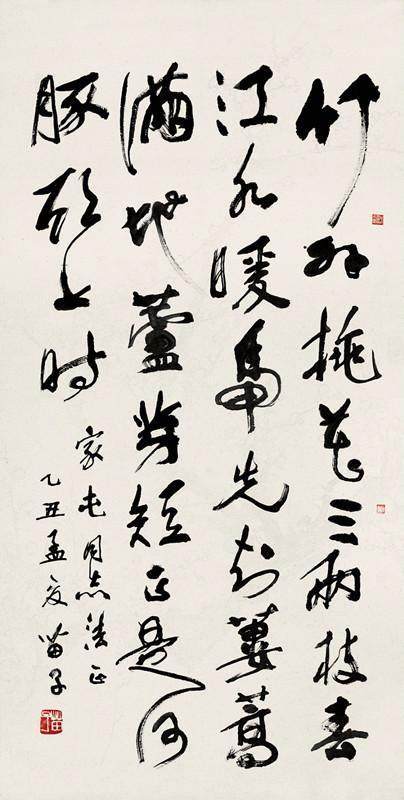 竹外桃花三兩枝春
江水暖鴨先知蔞蒿
滿地蘆芽短正是河
豚欲上时
家屯同志正
乙丑孟夏苗子